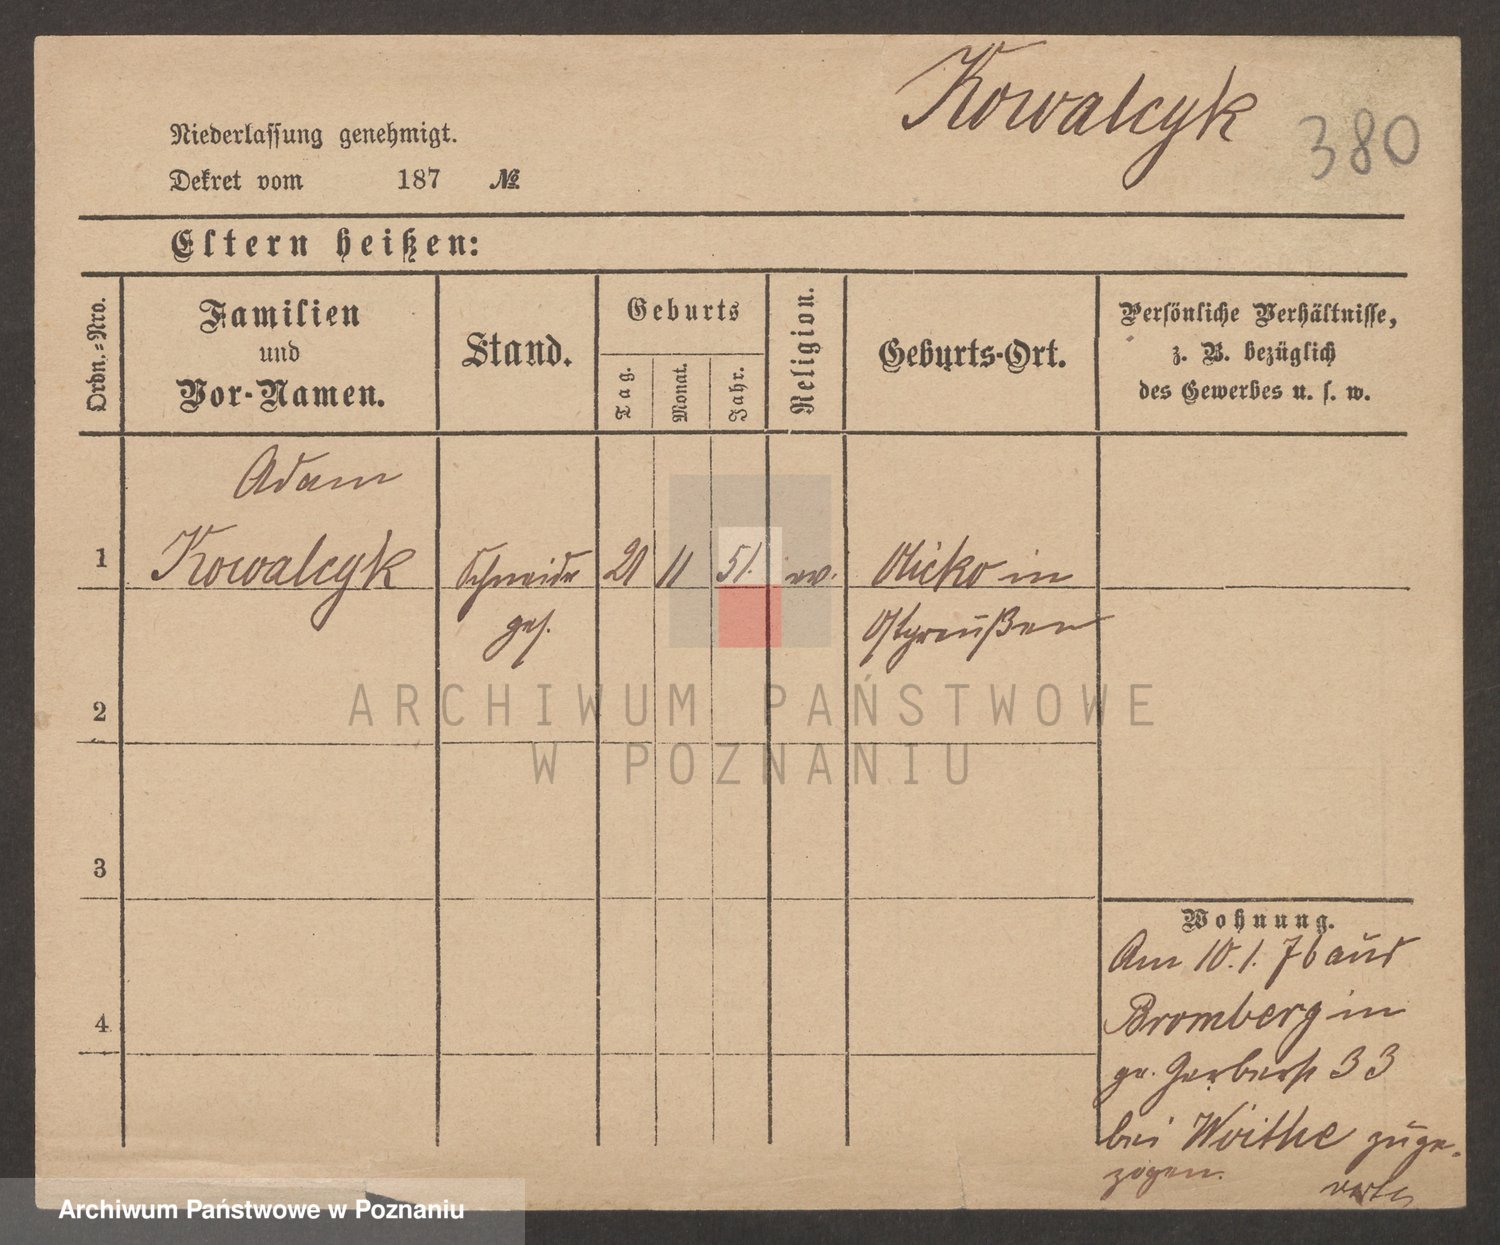 Kowalcyk
380
Niederlassung genehmigt.
Dekret vom 187 №
Eltern heißen:
Ordn.-Nro.
Familien
und
Vor-Namen.
Stand.
Geburts
Tag.
Monat.
Jahr.
Religion.
Geburts-Ort.
Persönliche Verhältnisse,
z. B. bezüglich
des Gewerbes u. s. w.
Adam
1 Kowalcyk Schneider 21 11 51. ev. in
ges. Ostpreußen
2
3
4
Wohnung.
Am 10. 1. 76 aus
Bromberg in
gr. Gerberst 33
bei Woithe zuge-
zogen.
ARCHIWUM PAŃSTWOWE
W POZNANIU
Archiwum Państwowe w Poznaniu